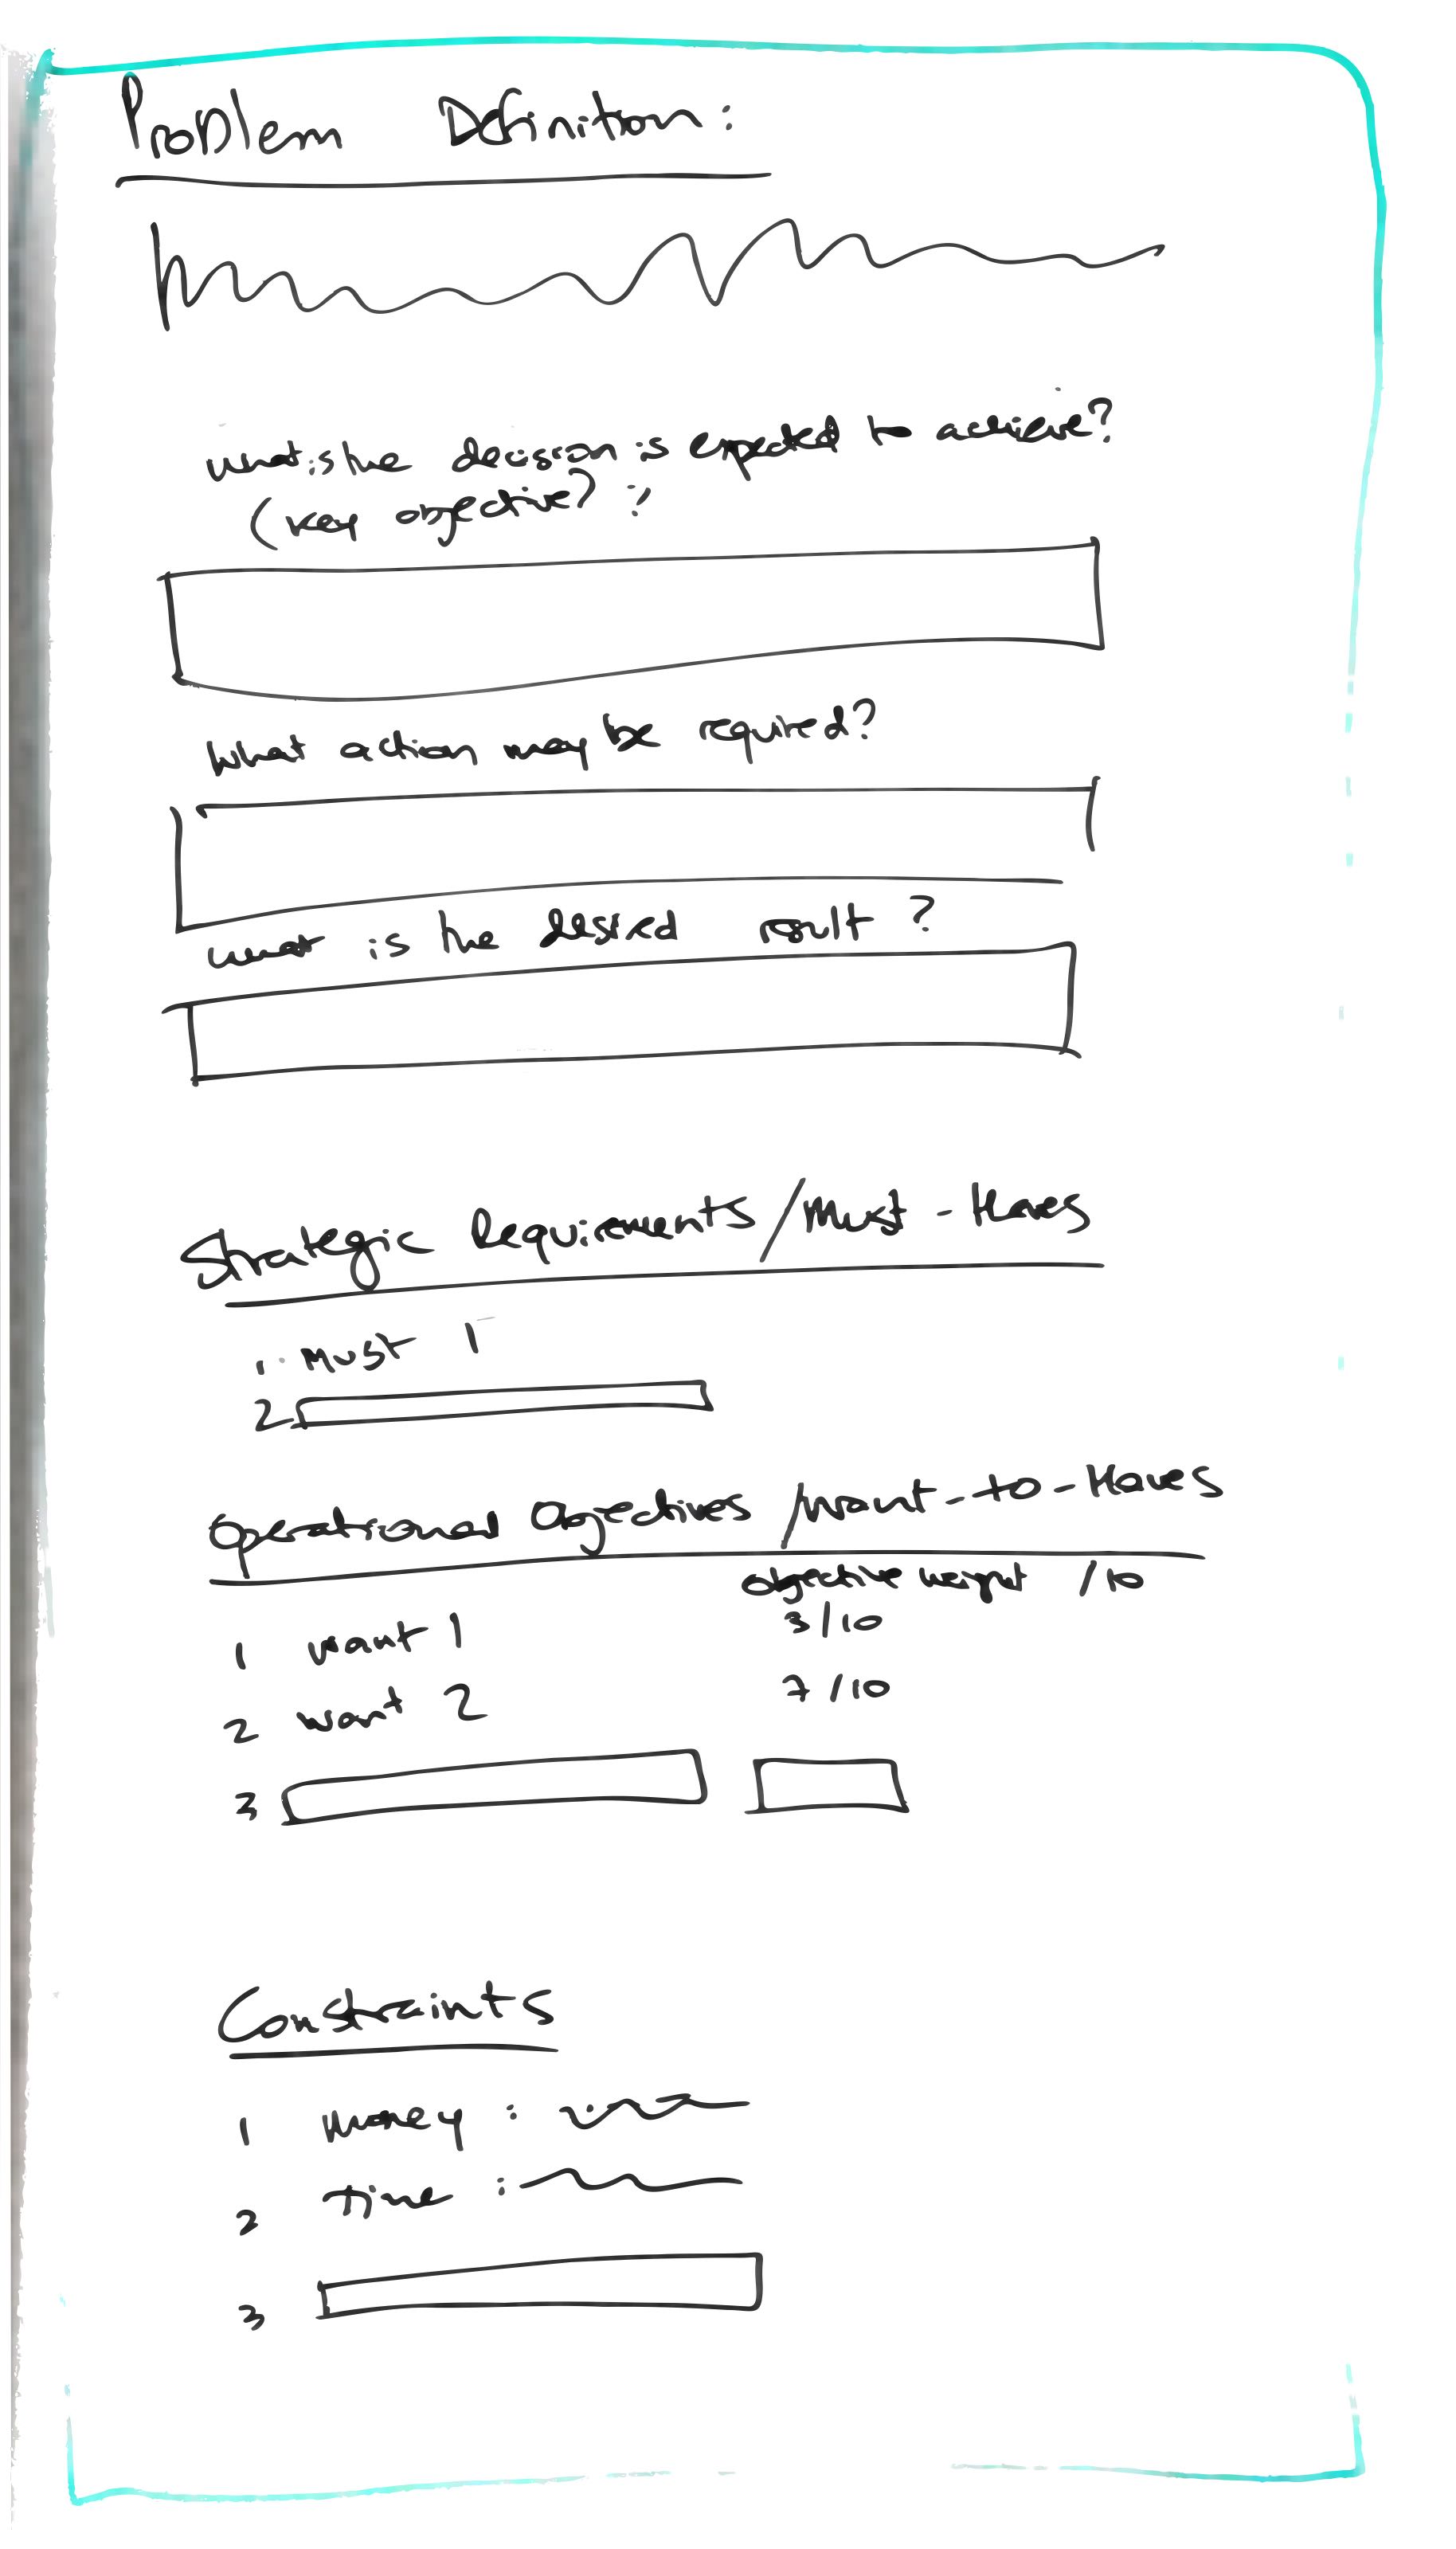 Problem Definition:
what is the decision is expected to achieve?
(key objective? :
What action may be required?
what is the desired result ?
Strategic Requirements/Must-Haves
1. Must 1
2
Operational Objectives /Want-to-Haves
objective weight /10
1 want 1 3/10
2 want 2 7/10
3
Constraints
1 money :
2 Time :
3